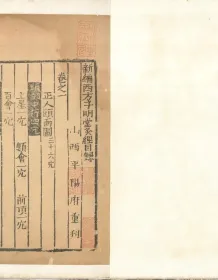 新編西方子明堂灸經目錄
山西平陽府重刊
卷之一
正人頭面圖三十六穴
上星一穴 顖會一穴 前項一穴
百會一穴